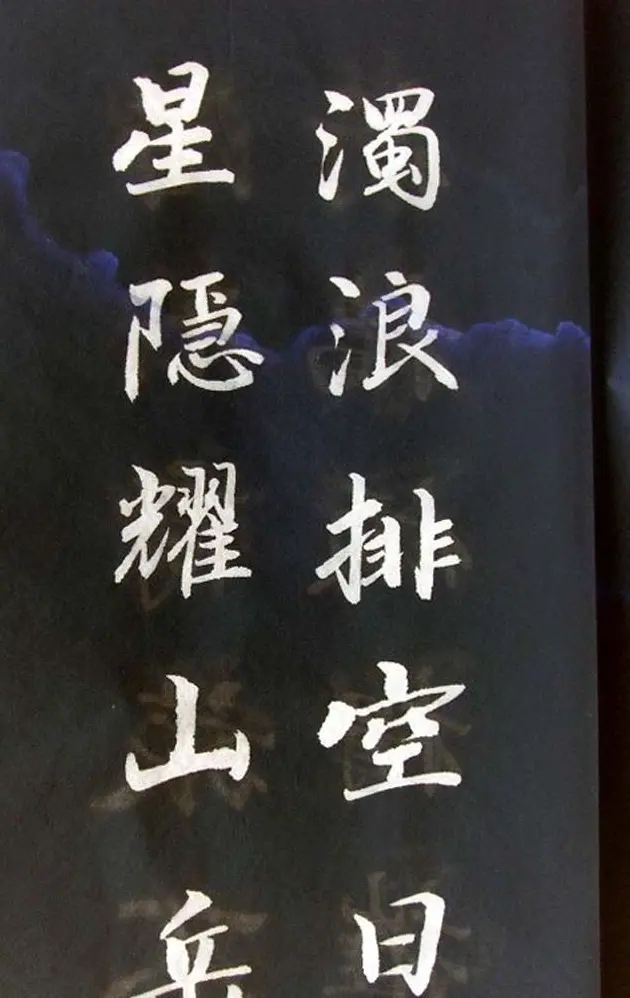 濁浪排空日
星隐耀山岳